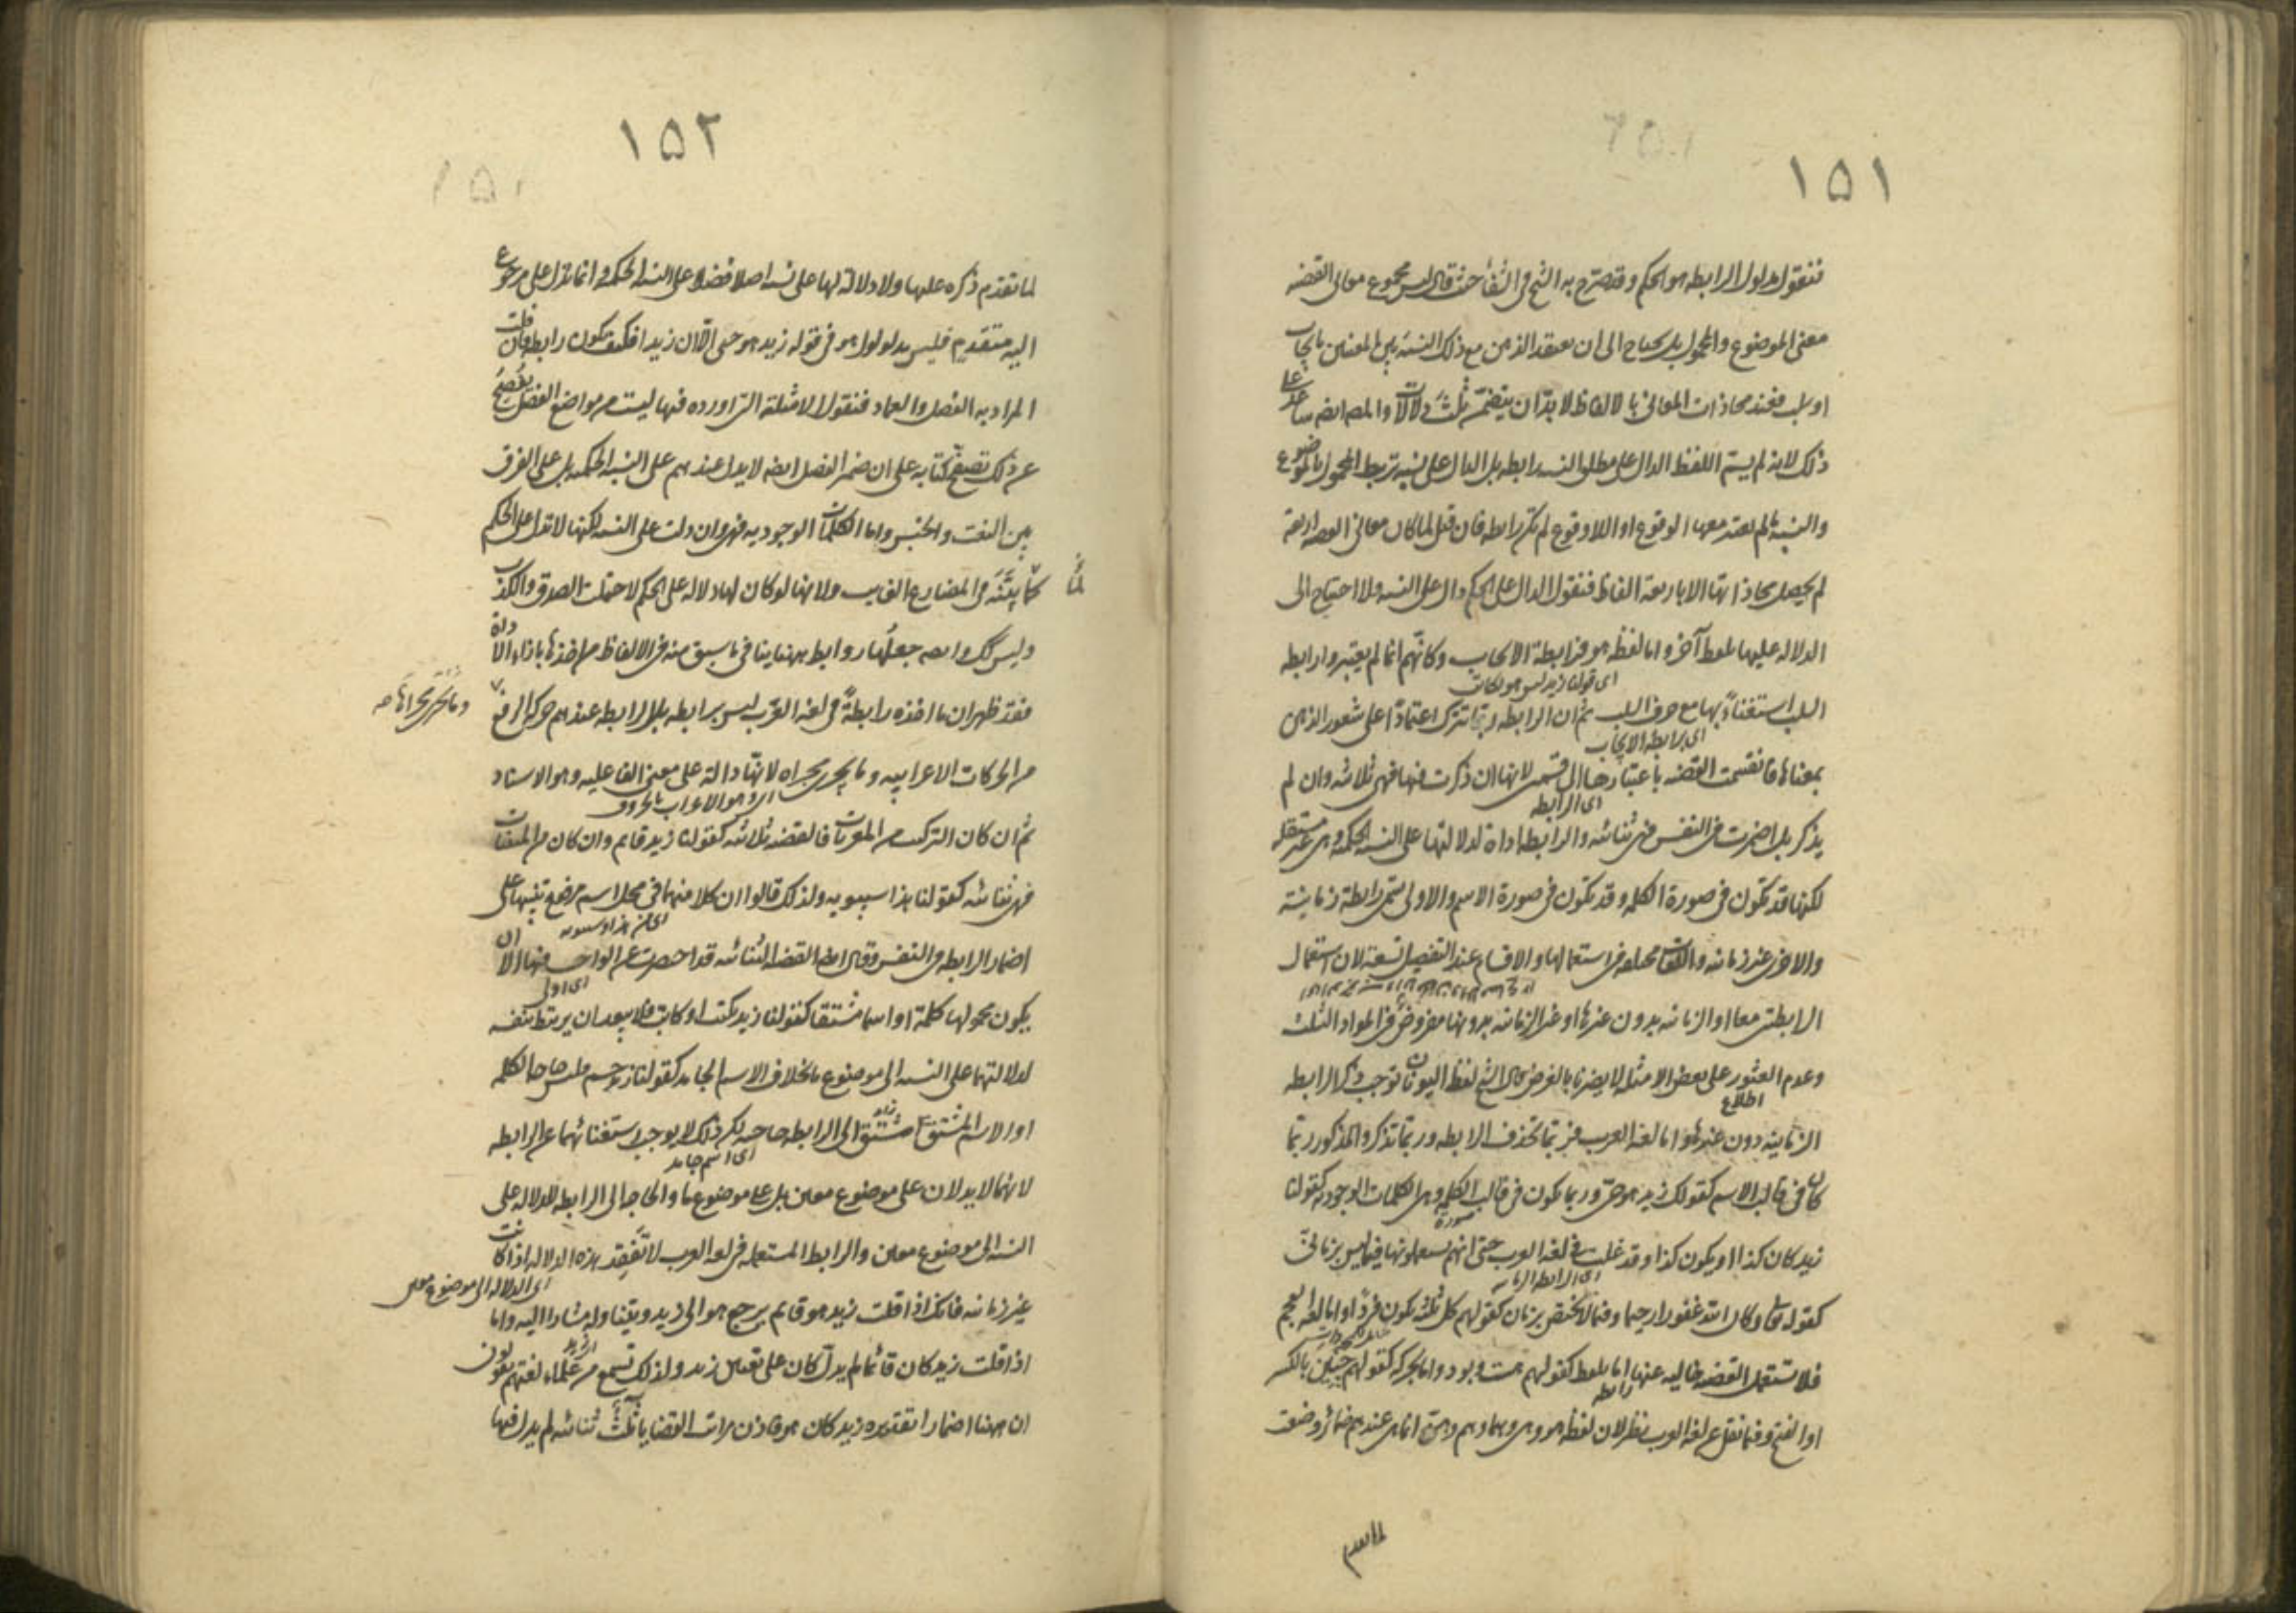 ١٥١
فنقول مدلول الرابطه هو الحكم وقد صرح به الشيخ فى الشفا حيث قال ليس مجموع معانى القضيه
معنى الموضوع والمحمول بل يحتاج الى ان يعتقد الذهن مع ذلك النسبة بين المعنيين بايجاب
او سلب فعند محاذات المعانى بالالفاظ لا بدّ ان يتضمّن ثلث دلالات وايضا يساعد على
ذلك لانه لم يسمّ اللفظ الدال على مطلق النسبه رابطه بل الدال على نسبه تربط المحمول بالموضوع
والنسبة ما لم يعتبر معها الوقوع او اللاوقوع لم تكن رابطه فان قيل لما كان معانى القضيه اربعة
لم يحصل محاذاتها الا باربعة الفاظ فنقول الدال على الحكم دال على النسبه ولا احتياج الى
الدلاله عليها بلفظ آخر واما لفظه هو فرابطة الايجاب وكانّهم انما لم يعتبروا رابطه
اى قولنا زيد ليس هو بكاتب
السلب استغناءً بها مع حرف السلب ثم ان الرابطه ربّما تترك اعتمادًا على شعور الذهن
اى برابطه الايجاب
بمعناها فانقسمت القضيه باعتبارها الى قسمين لانها ان ذكرت فيها فهى ثلاثيه وان لم
اى الرابطه
يذكر بل اضمرت فى النفس فهى ثنائيه والرابطه اداة لدلالتها على النسبه الحكميه وهى غير مستقله
لكنها قد تكون فى صورة الكلمه وقد تكون فى صورة الاسم والاولى تسمى رابطة زمانية
والاخرى غير زمانيه واللغات مختلفه فى استعمالها والاقسام عند التفصيل تسعة لان استعمال
الرابطتين معا او الزمانيه بدون غيرها او غير الزمانيه بدونها مفروض فى المواد الثلث
وعدم العثور على بعض الامثله لا يضرنا بالغرض قال الشيخ لغة اليونان توجب ذكر الرابطه
اطلاع
الزمانيه دون غيرها واما لغة العرب فربّما تحذف الرابطه وربّما تذكر والمذكور ربّما
كان فى قالب الاسم كقولك زيد هو حىّ وربما يكون فى قالب الكلمه وهى الكلمات الوجوديه كقولنا
صورة
زيد كان كذا او يكون كذا وقد غلبت فى لغة العرب حتى انهم يستعملونها فيما ليس بزمانى
اى الرابطه الزمانيه
كقوله تعالى وكان الله غفورا رحيما وفيما لا يختص بزمان كقولهم كل ثلثه يكون فردًا واما لغة العجم
فلا تستعمل القضيه خاليه عنها اما بلفظ كقولهم هست وبود واما بحركه كقولهم چنين بالكسر
رابطه
او الفتح وفيما نقل عن لغة العرب نظر لان لفظه هو وهى وهما وهم وهنّ انما هى عندهم ضمائر وضعت
لما تقدم
١٥٢
لما تقدّم ذكره عليها ولا دلالة لها على نسبه اصلا فضلا على النسبه الحكميه وانما تدل على مرجوع
اليه متقدم فليس مدلول هو فى قوله زيد هو حى الّا ان زيدا فكيف تكون رابطه فان قلت
المراد به الفصل والعماد فنقول الامثلة التى اورده فيها ليست من مواضع الفصل يفصح
عن ذلك تصفح كتابه على ان ضمير الفصل ايضا لا يدل عندهم على النسبه الحكميه بل على الفرق
بين النعت والخبر واما الكلمات الوجوديه فهى وان دلت على النسبه لكنها لا تدل على الحكم
لما
كما بيّنه فى المضارع الغايب ولانها لو كان لها دلاله على الحكم لاحتملت الصدق والكذب
وليس كك وايضا جعلها روابط ههنا ينافى ما سبق منه فى الالفاظ من اخذها بازاء الاداة
وما يجرى مجراها صح
فقد ظهر ان ما اخذه رابطةً فى لغة العرب ليس برابطه بل الرابطه عندهم حركه الرفع
من الحركات الاعرابيه وما يجرى مجراه لانّها دالة على معنى الفاعليه وهو الاسناد
اى وهو الاعراب بالحروف
ثم ان كان التركيب من المعربات فالقضيه ثلاثيه كقولنا زيد قايم وان كان من المبنيات
فهى ثنائيه كقولنا هذا سيبويه ولذلك قالوا ان كلا منهما فى محل اسم مرفوع تنبيها على
اى من هذا وسيبويه
اضمار الرابطه فى النفس وقال ايضا القضيه الثنائيه قد اختصرت عن الواجب فيها الا ان
اى اولى
يكون محمولها كلمة او اسما مشتقا كقولنا زيد يكتب او كاتب فلا يبعد ان يرتبط بنفسه
لدلالتهما على النسبه الى موضوع ما بخلاف الاسم الجامد كقولنا زيد جسم فليس حاجه الكلمه
او الاسم المشتق الى الرابطه حاجه لكن ذلك لا يوجب استغنائهما عن الرابطه
اى اسم جامد
لانهما لا يدلان على موضوع معين بل على موضوع ما والحاجه الى الرابطه للدلاله على
النسبه الى موضوع معين والرابط المستعمله فى لغة العرب لا تفقد هذه الدلاله اذا كانت
اى الدلاله الى موضوع معين
غير زمانيه فانك اذا قلت زيد هو قايم يرجع هو الى زيد ويتناوله مشارا اليه واما
اذا قلت زيد كان قائما لم يدل كان على تعيين زيد ولذلك تسمع من علماء لغتهم يقولون
ان ههنا اضمارا تقديره زيد كان هو فاذن مراتب القضايا ثلث ثنائيه لم يدل فيها